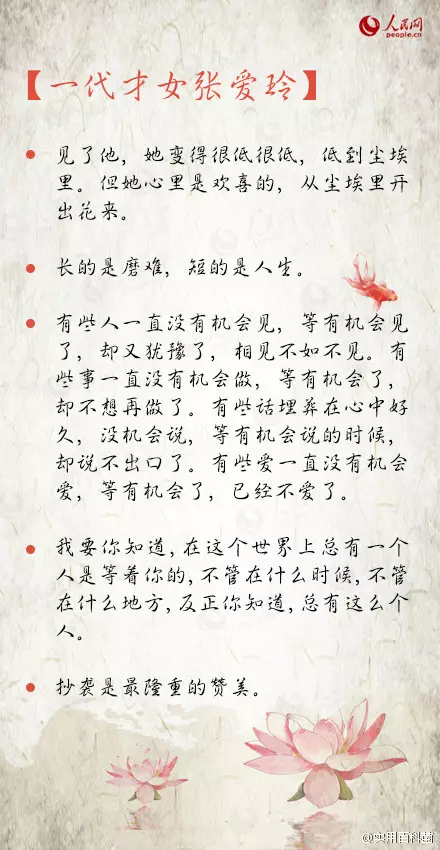 人民网
people.cn
【一代才女张爱玲】
见了他，她变得很低很低，低到尘埃
里。但她心里是欢喜的，从尘埃里开
出花来。
长的是磨难，短的是人生。
有些人一直没有机会见，等有机会见
了，却又犹豫了，相见不如不见。有
些事一直没有机会做，等有机会了，
却不想再做了。有些话埋葬在心中好
久，没机会说，等有机会说的时候，
却说不出口了。有些爱一直没有机会
爱，等有机会了，已经不爱了。
我要你知道，在这个世界上总有一个
人是等着你的，不管在什么时候，不管
在什么地方，反正你知道，总有这么个
人。
抄袭是最隆重的赞美。
@实用百科菌